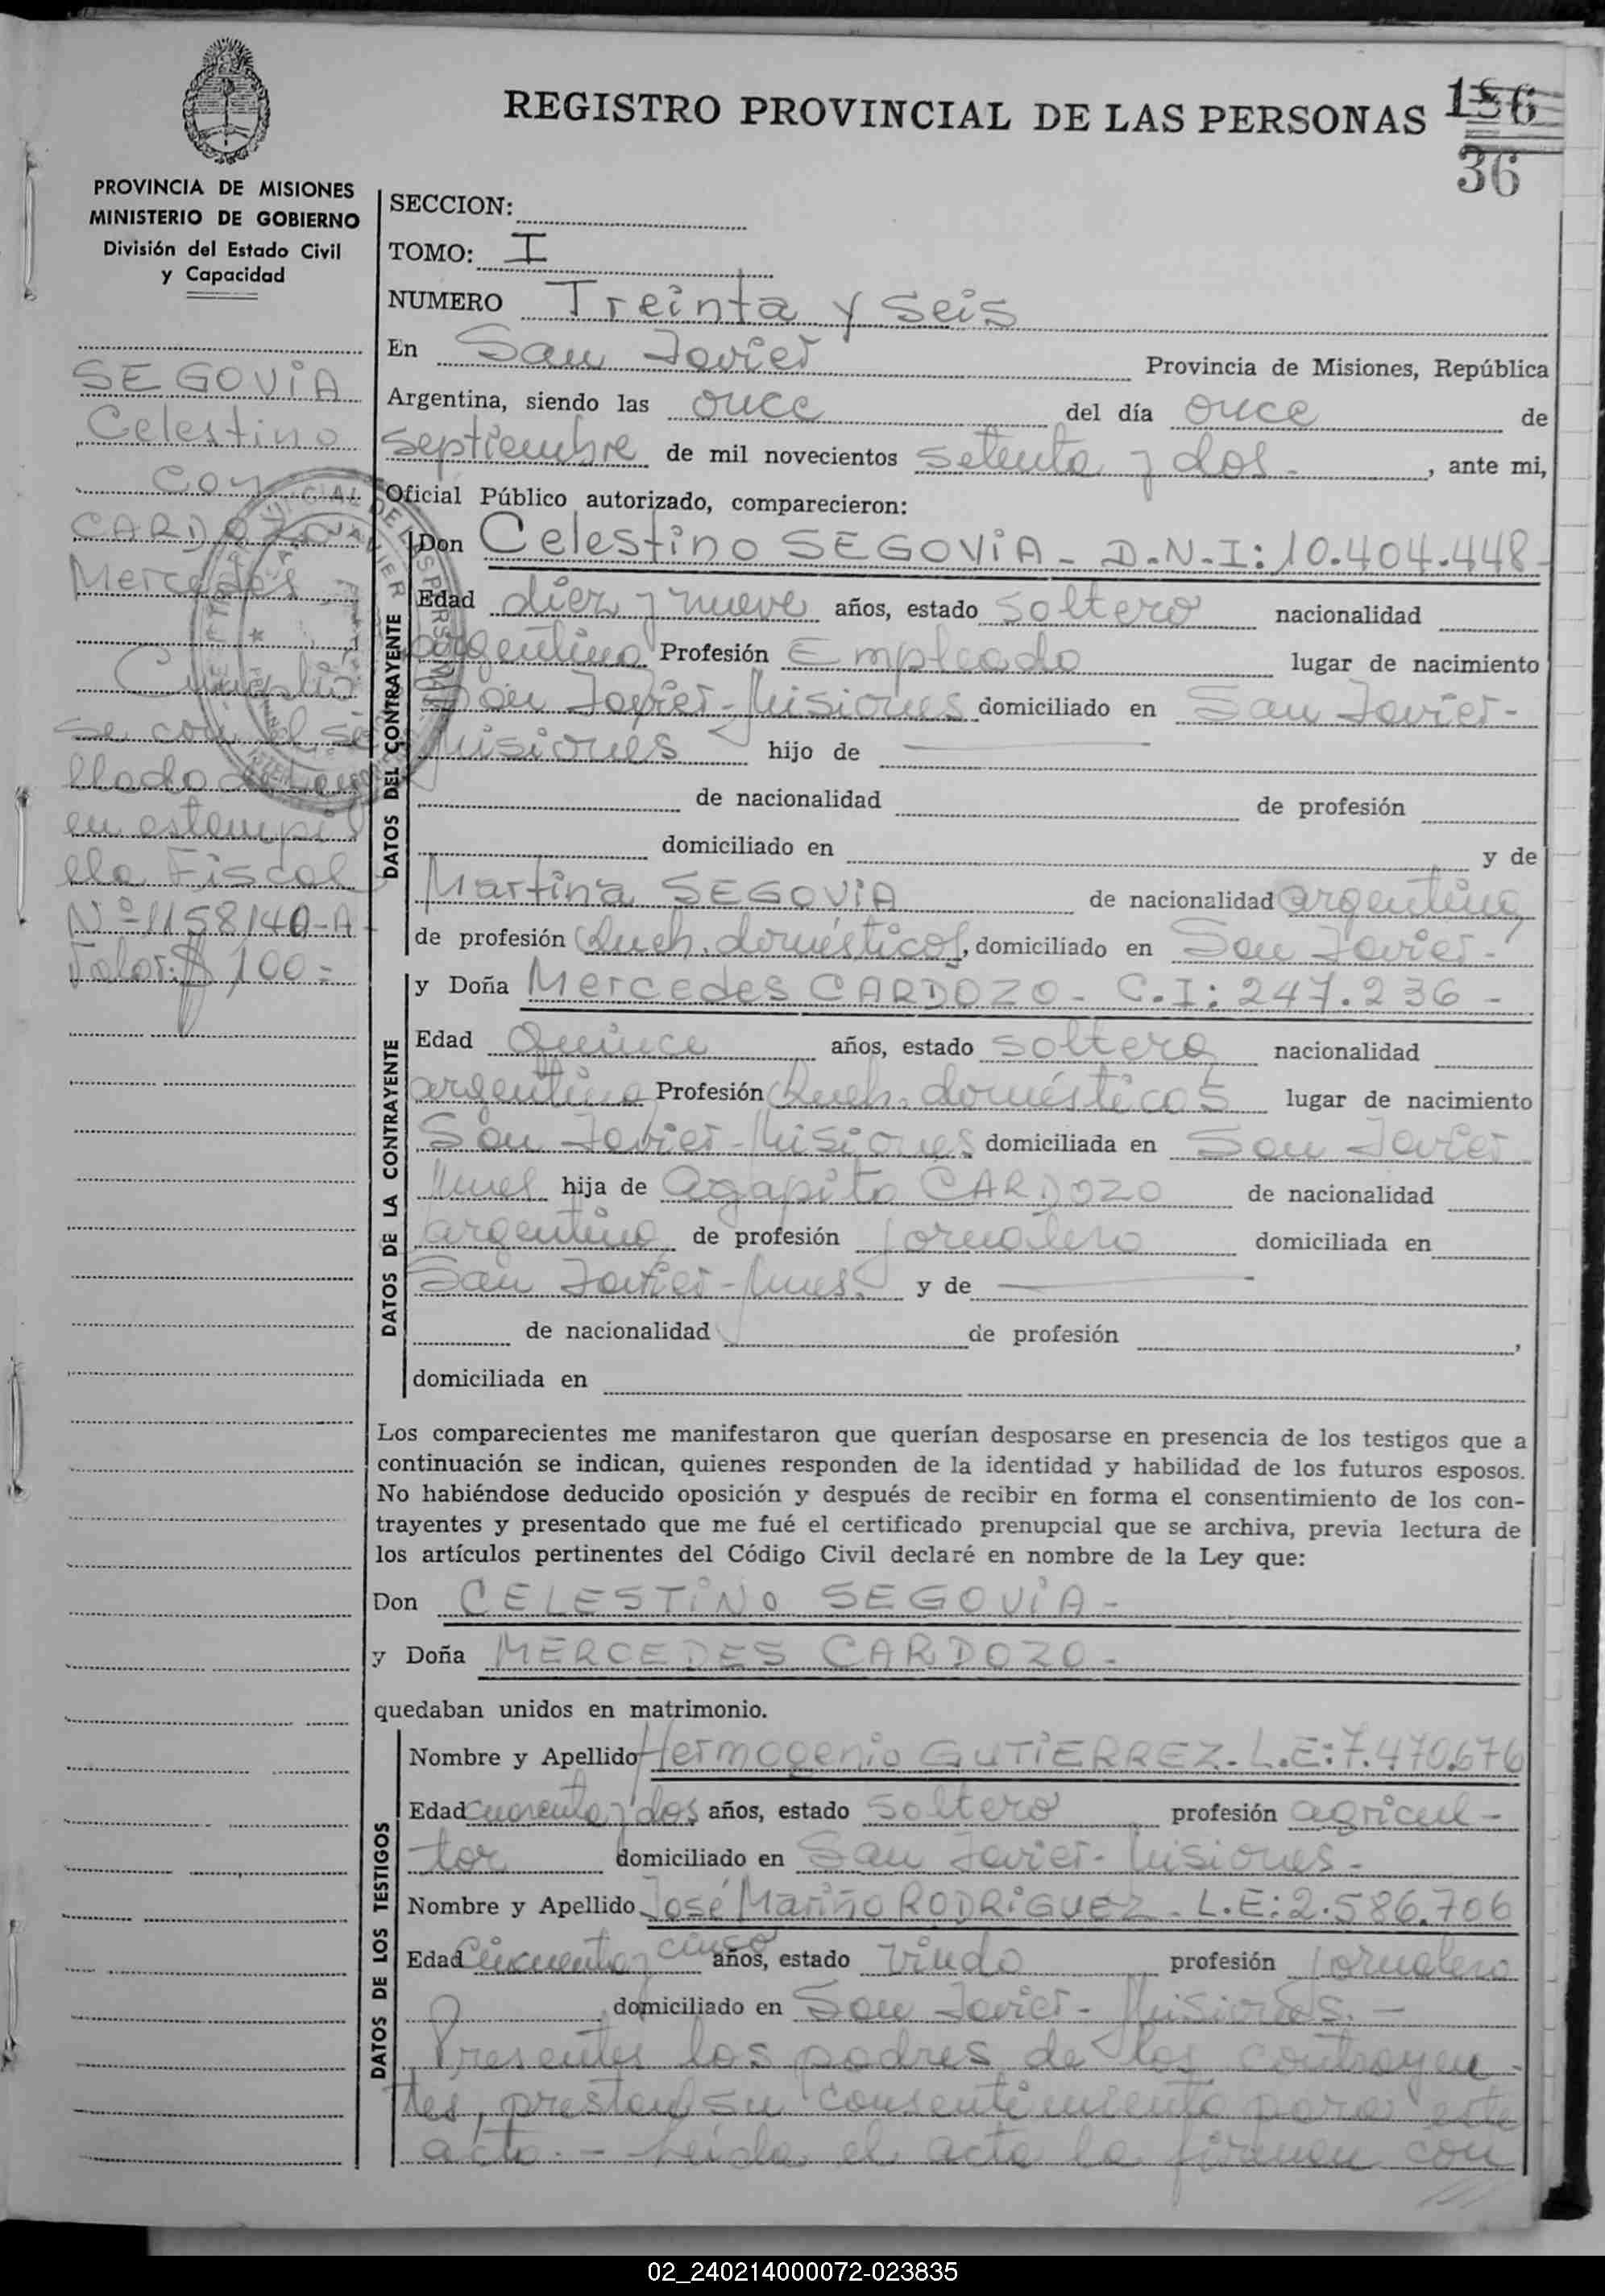 REGISTRO PROVINCIAL DE LAS PERSONAS
156
36
PROVINCIA DE MISIONES
MINISTERIO DE GOBIERNO
División del Estado Civil
y Capacidad
SEGOVIA
Celestino
con
CARDOZO
Mercedes
Cumplió
se con el se
llado de Ley
en estampi
lla Fiscal
Nº 1158140-A
Valor: $ 100=
SECCION:
TOMO: I
NUMERO Treinta y seis
En San Javier Provincia de Misiones, República
Argentina, siendo las once del día once de
septiembre de mil novecientos setenta y dos.- , ante mi,
Oficial Público autorizado, comparecieron:
DATOS DEL CONTRAYENTE
Don Celestino SEGOVIA - D.N.I: 10.404.448-
Edad diez y nueve años, estado soltero nacionalidad
argentina Profesión Empleado lugar de nacimiento
San Javier-Misiones domiciliado en San Javier-
Misiones hijo de
de nacionalidad de profesión
domiciliado en y de
Martina SEGOVIA de nacionalidad argentina,
de profesión Queh. domésticos, domiciliado en San Javier-
DATOS DE LA CONTRAYENTE
y Doña Mercedes CARDOZO - C.I: 247.236 -
Edad Quince años, estado soltera nacionalidad
argentina Profesión Queh. domésticos lugar de nacimiento
San Javier-Misiones domiciliada en San Javier-
Mnes. hija de Agapito CARDOZO de nacionalidad
argentina de profesión jornalero domiciliada en
San Javier-Mnes. y de
de nacionalidad de profesión ,
domiciliada en
Los comparecientes me manifestaron que querían desposarse en presencia de los testigos que a
continuación se indican, quienes responden de la identidad y habilidad de los futuros esposos.
No habiéndose deducido oposición y después de recibir en forma el consentimiento de los con-
trayentes y presentado que me fué el certificado prenupcial que se archiva, previa lectura de
los artículos pertinentes del Código Civil declaré en nombre de la Ley que:
Don CELESTINO SEGOVIA -
y Doña MERCEDES CARDOZO -
quedaban unidos en matrimonio.
DATOS DE LOS TESTIGOS
Nombre y Apellido Hermogenio GUTIERREZ - L.E: 7.470.676
Edad cuarenta y dos años, estado soltero profesión agricul-
tor domiciliado en San Javier-Misiones-
Nombre y Apellido José Mariño RODRIGUEZ - L.E: 2.586.706
Edad Cincuenta y cinco años, estado viudo profesión jornalero
domiciliado en San Javier-Misiones.-
Presentes los padres de los contrayen-
tes, prestan su consentimiento para este
acto.- Leída el acta la firman con
02_240214000072-023835